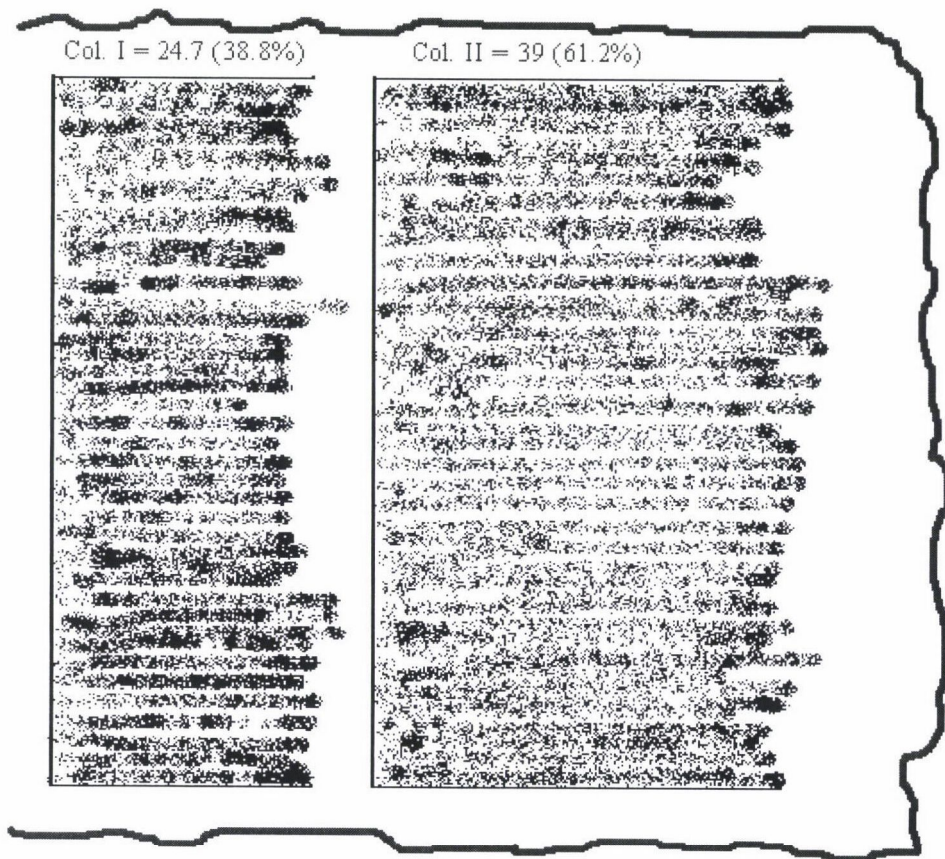 Col. I = 24.7 (38.8%)
Col. II = 39 (61.2%)